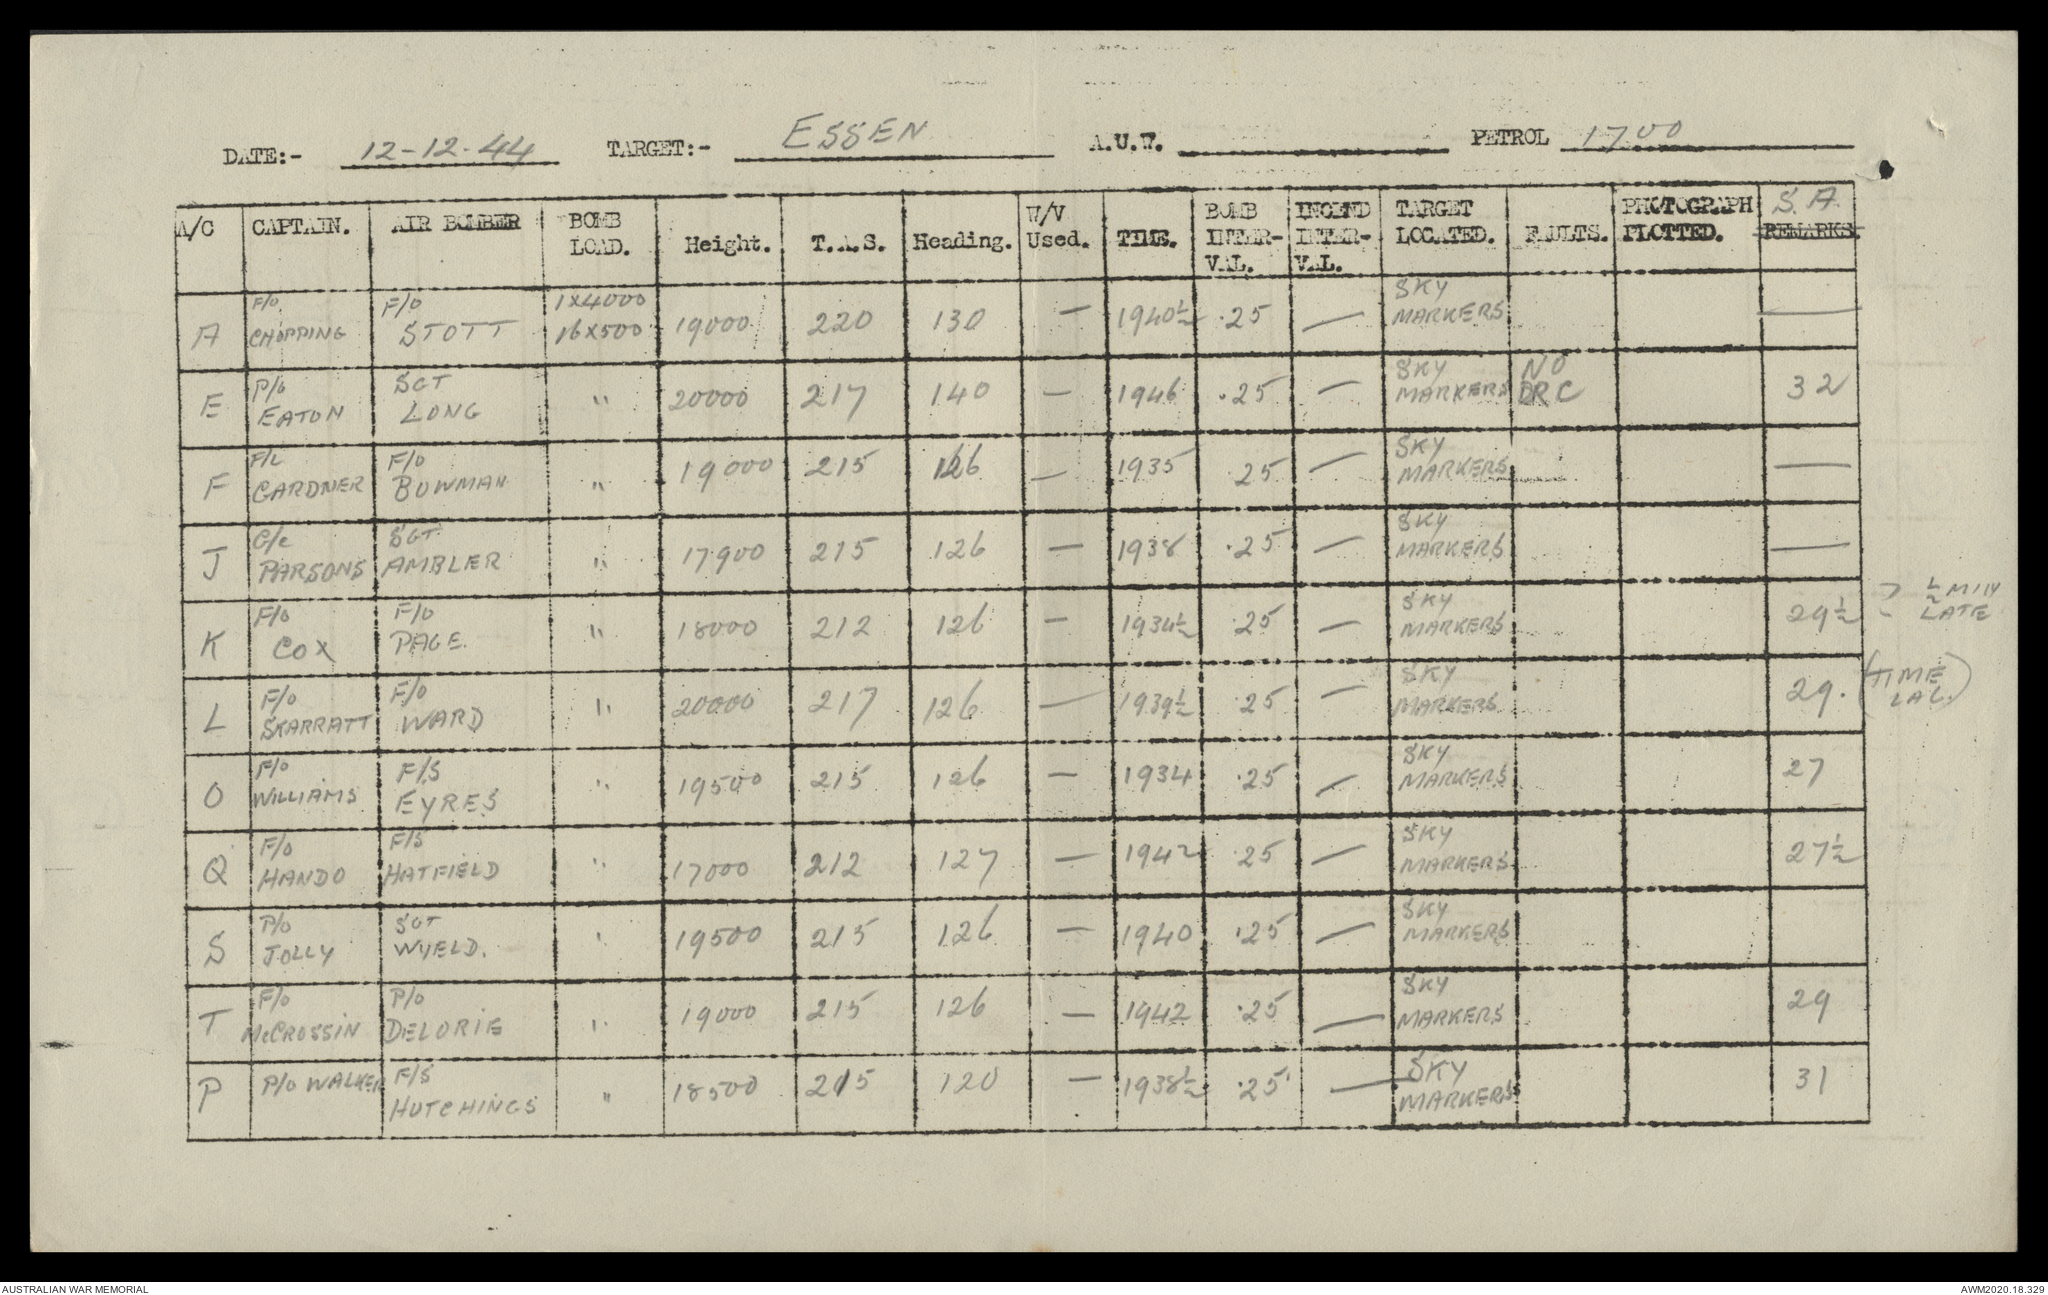 DATE:- 12-12-44 TARGET:- ESSEN A.U.W. PETROL 1700
A/C CAPTAIN. AIR BOMBER BOMB LOAD. Height. T.A.S. Heading. W/V Used. TIME. BOMB INTER-VAL. INCEND INTER-VAL. TARGET LOCATED. FAULTS. PHOTOGRAPH PLOTTED. S.A. REMARKS.
A F/O CHOPPING F/O STOTT 1X4000 16X500 19000 220 130 — 1940½ .25 — SKY MARKERS —
E P/O EATON SGT LONG " 20000 217 140 — 1946 .25 — SKY MARKERS NO DRC 32
F F/L GARDNER F/O BOWMAN " 19000 215 126 — 1935 .25 — SKY MARKERS —
J PARSONS SGT AMBLER " 17900 215 126 — 1938 .25 — SKY MARKERS —
K F/O COX F/O PAGE. " 18000 212 126 — 1934½ .25 — SKY MARKERS 29½ ½ MIN LATE
L F/O SKARRATT F/O WARD " 20000 217 126 — 1939½ .25 — SKY MARKERS 29. (TIME LAG.)
O F/O WILLIAMS F/S EYRES " 19500 215 126 — 1934 .25 — SKY MARKERS 27
Q F/O HANDO F/S HATFIELD " 17000 212 127 — 1942 .25 — SKY MARKERS 27½
S P/O JOLLY SGT WYELD. " 19500 215 126 — 1940 .25 — SKY MARKERS
T F/O McCROSSIN P/O DELORIE " 19000 215 126 — 1942 .25 — SKY MARKERS 29
P P/O WALKER F/S HUTCHINGS " 18500 215 120 — 1938½ .25 — SKY MARKERS 31
AUSTRALIAN WAR MEMORIAL AWM2020.18.329